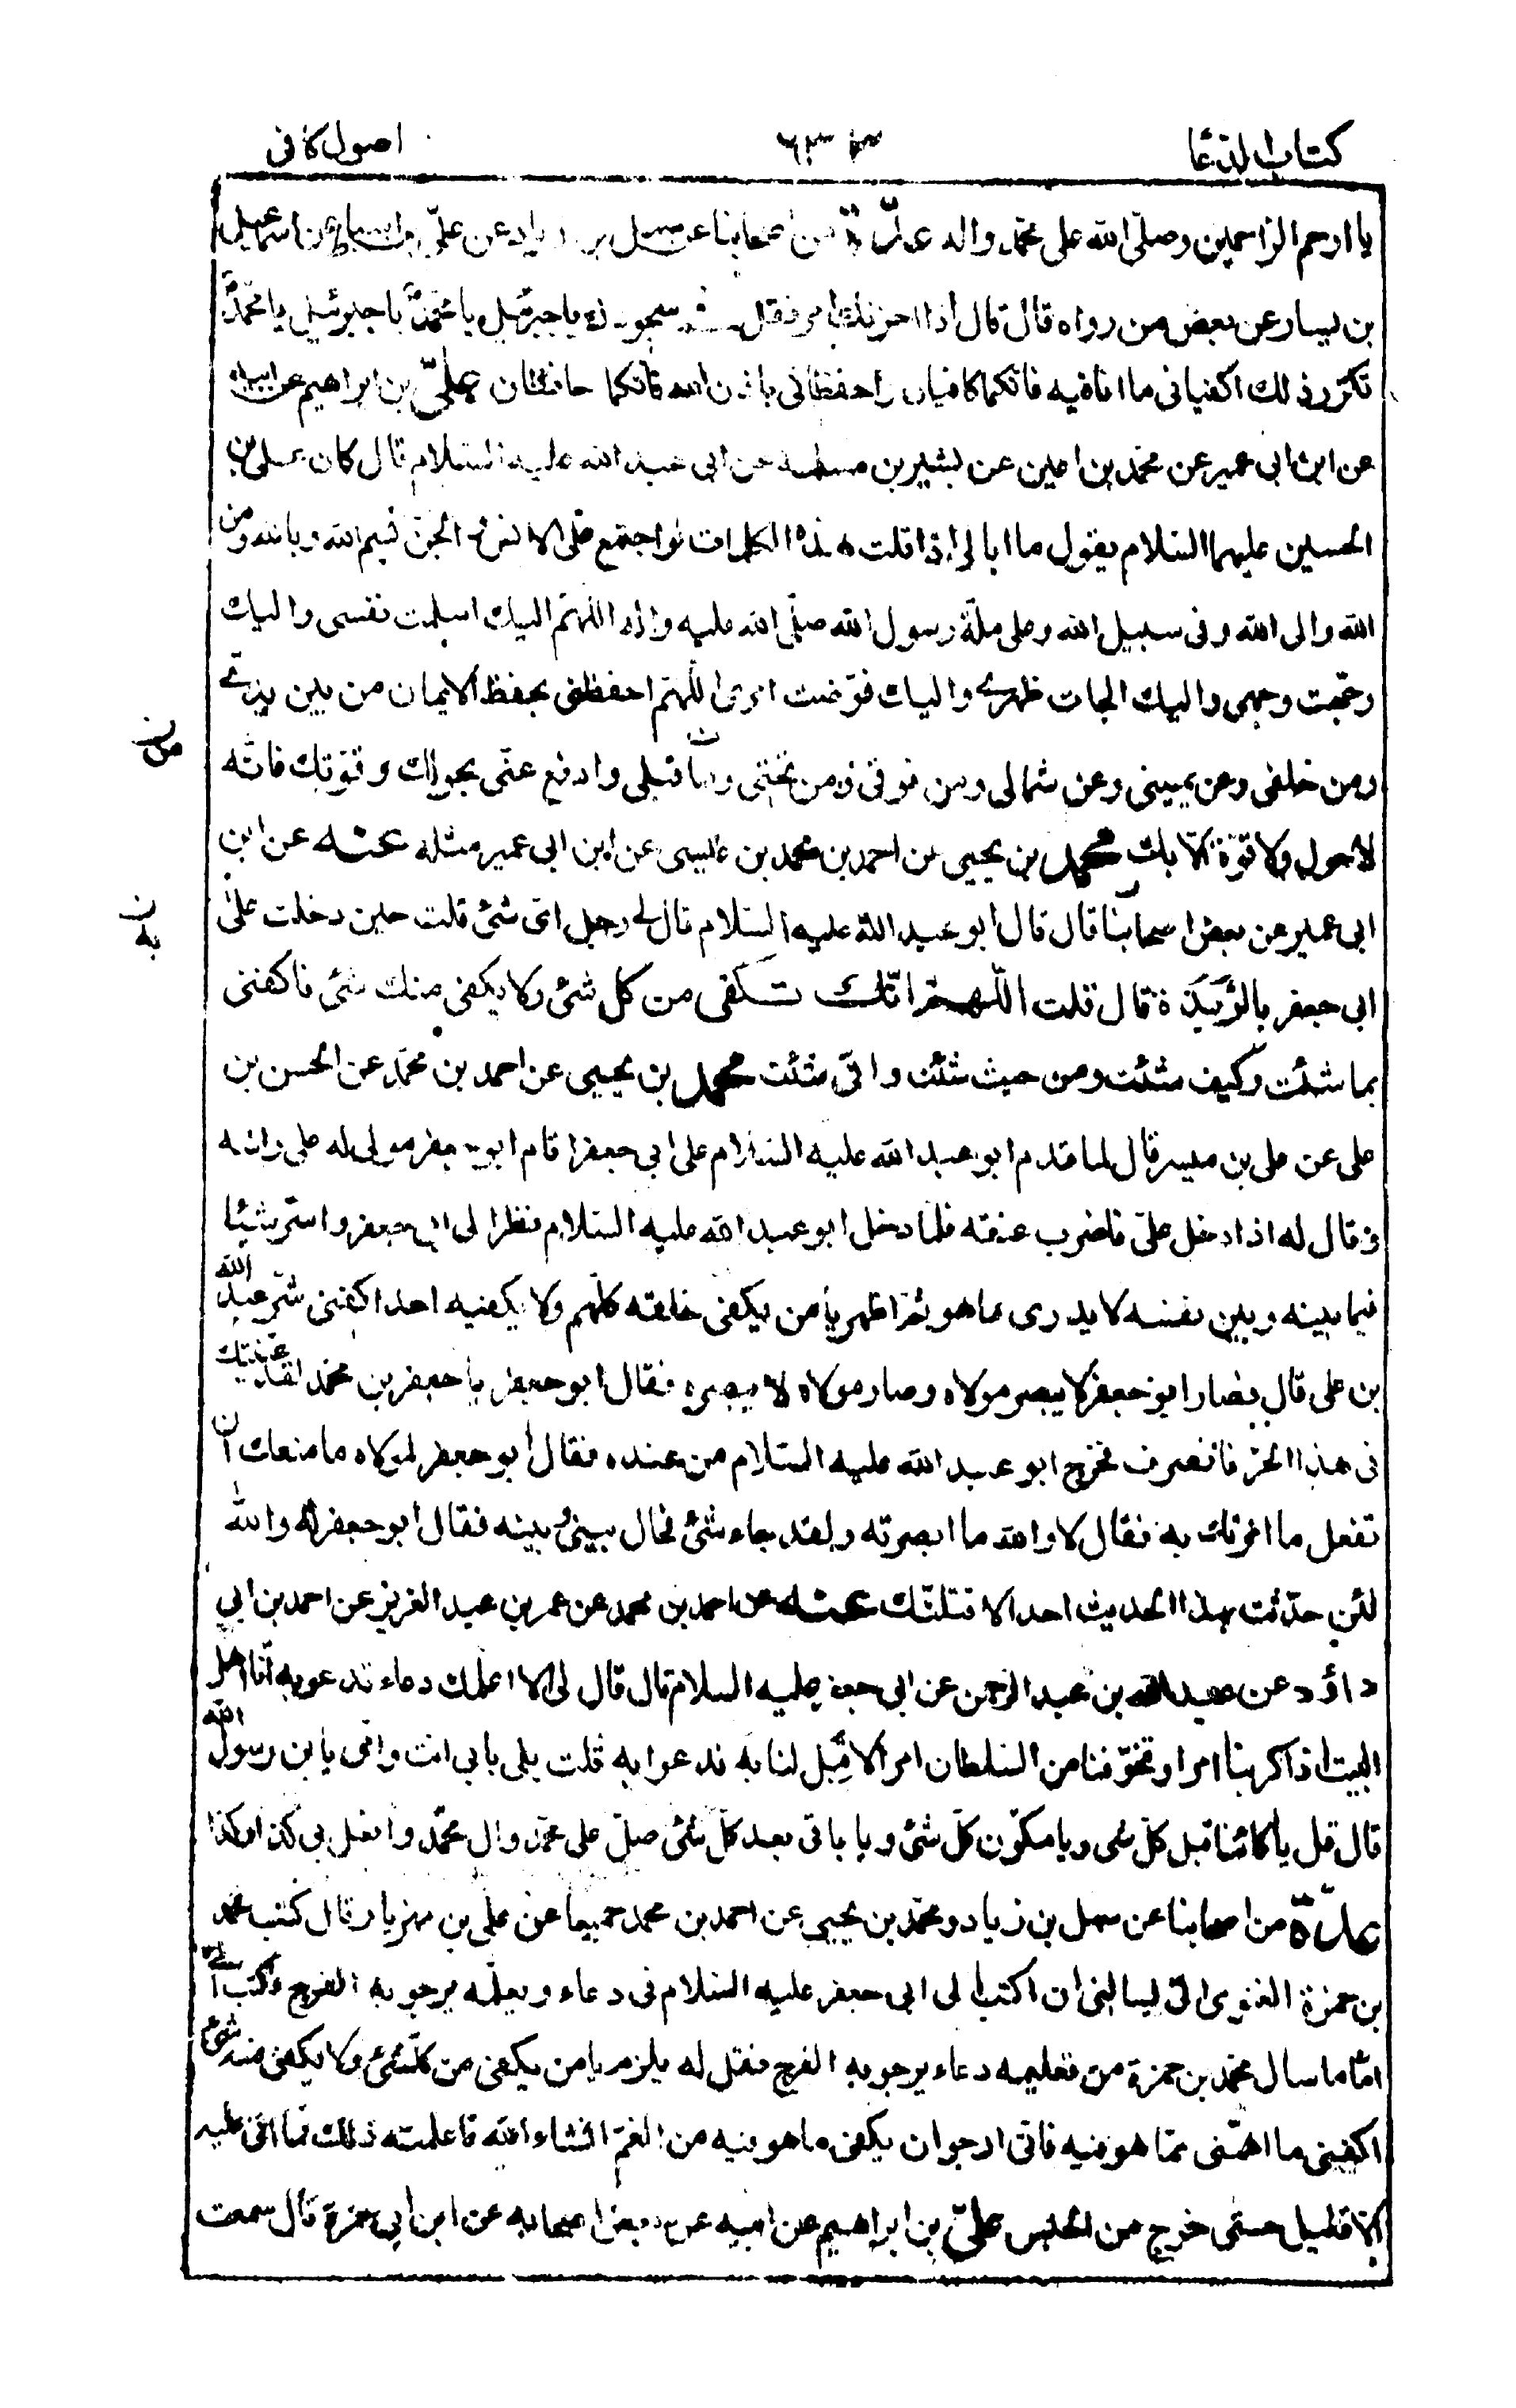 كتاب الدعا ٦٣٣ اصول كافى
يا ارحم الراحمين وصلى الله على محمد واله عدّة من اصحابنا عن سهل بن زياد عن علىّ بن اسباط عن اسمعيل
بن يسار عن بعض من رواه قال قال اذا احزنك امر فقل فى سجودك يا جبرئيل يا محمّد يا جبرئيل يا محمّد
تكرّر ذلك اكفيانى ما انا فيه فانكما كافيان واحفظانى باذن الله فانكما حافظان علىّ بن ابراهيم عن ابيه
عن ابن ابى عمير عن محمد بن اعين عن بشير بن مسلمة عن ابى عبد الله عليه السلام قال كان على بن
الحسين عليهما السلام يقول ما ابالى اذا قلت هذه الكلمات لو اجتمع علىّ الانس والجنّ بسم الله وبالله ومن
الله والى الله وفى سبيل الله وعلى ملّة رسول الله صلّى الله عليه واله اللهم اليك اسلمت نفسى واليك
وجّهت وجهى واليك الجات ظهرى واليك فوّضت امرى اللّهمّ احفظنى بحفظ الايمان من بين يدىّ
ومن خلفى وعن يمينى وعن شمالى ومن فوقى ومن تحتى وما قبلى وادفع عنّى بحولك وقوّتك فانّه
من ن
لاحول ولا قوّة الّا بك محمد بن يحيى عن احمد بن محمد بن عيسى عن ابن ابى عمير مثله عنه عن ابن
ابى عمير عن بعض اصحابنا قال قال ابو عبد الله عليه السلام قال لى رجل اىّ شئ قلت حين دخلت على
به ن
ابى جعفر بالرّبذة قال قلت اللّهمّ انّك تكفى من كل شئ ولا يكفى منك شئ فاكفنى
بما شئت وكيف شئت ومن حيث شئت وانّى شئت محمد بن يحيى عن احمد بن محمّد عن الحسن بن
على عن على بن ميسر قال لما قدم ابو عبد الله عليه السلام على ابى جعفر اقام ابو جعفر مولى له على راسه
وقال له اذا دخل علىّ فاضرب عنقه فلما دخل ابو عبد الله عليه السلام نظر الى ابى جعفر واسرّ شيئا
فيما بينه وبين نفسه لا يدرى ما هو ثمّ اظهر يا من يكفى خلقه كلّهم ولا يكفيه احد اكفنى شرّ عبد الله
بن على قال فصار ابو جعفر لا يبصر مولاه وصار مولاه لا يبصره فقال ابو جعفر يا جعفر بن محمد لقد عنّيتك
فى هذا الحرّ فانصرف فخرج ابو عبد الله عليه السلام من عنده فقال ابو جعفر لمولاه ما منعك ان
تفعل ما امرتك به فقال لا والله ما ابصرته ولقد جاء شئ فحال بينى وبينه فقال ابو جعفر له والله
لئن حدّثت بهذا الحديث احدا لاقتلنّك عنه عن احمد بن محمد عن عمر بن عبد العزيز عن احمد بن ابى
داؤد عن عبد الله بن عبد الرحمن عن ابى جعفر عليه السلام قال قال لى الا اعلمك دعاء تدعو به انّا اهل
البيت اذا كربنا امر وتخوّفنا من السلطان امرا لا قِبَل لنا به ندعو به قلت بلى بابى انت وامّى يا بن رسول الله
قال قل يا كائنا قبل كلّ شئ ويا مكوّن كلّ شئ ويا باقى بعد كلّ شئ صلّ على محمّد وال محمّد وافعل بى كذا وكذا
عدّة من اصحابنا عن سهل بن زياد ومحمّد بن يحيى عن احمد بن محمد جميعا عن على بن مهزيار قال كتب محمد
بن حمزة الغنوى الىّ يسالنى ان اكتب الى ابى جعفر عليه السلام فى دعاء ويعلّمه يرجو به الفرج فكتب الىّ
امّا ما سال محمّد بن حمزة من تعليمه دعاء يرجو به الفرج فقل له يلزم يا من يكفى من كلّ شئ ولا يكفى منه شئ
اكفنى ما اهمّنى ممّا هو فيه فانى ارجو ان يكفى ما هو فيه من الغمّ انشاء الله فاعلمته ذلك فما اتى عليه
الّا قليل حتى خرج من الحبس علىّ بن ابراهيم عن ابيه عن بعض اصحابه عن ابن ابى حمزة قال سمعت